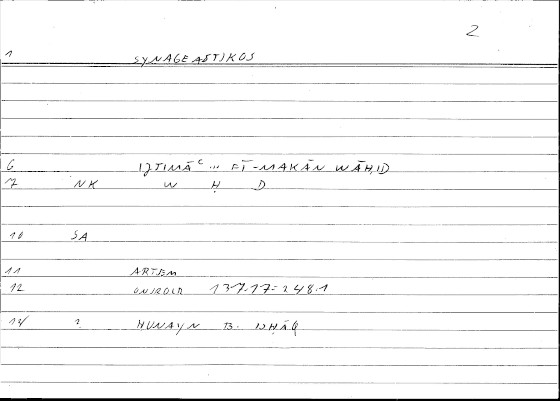 2
1 SYNAGEASTIKOS
6 IJTIMĀʿ ... FĪ-MAKĀN WĀḤID
7 NK W Ḥ D
10 SA
11 ARTEM
12 ONIROCR 137.17 = 248.1
14 ? ḤUNAYN B. ISḤĀQ